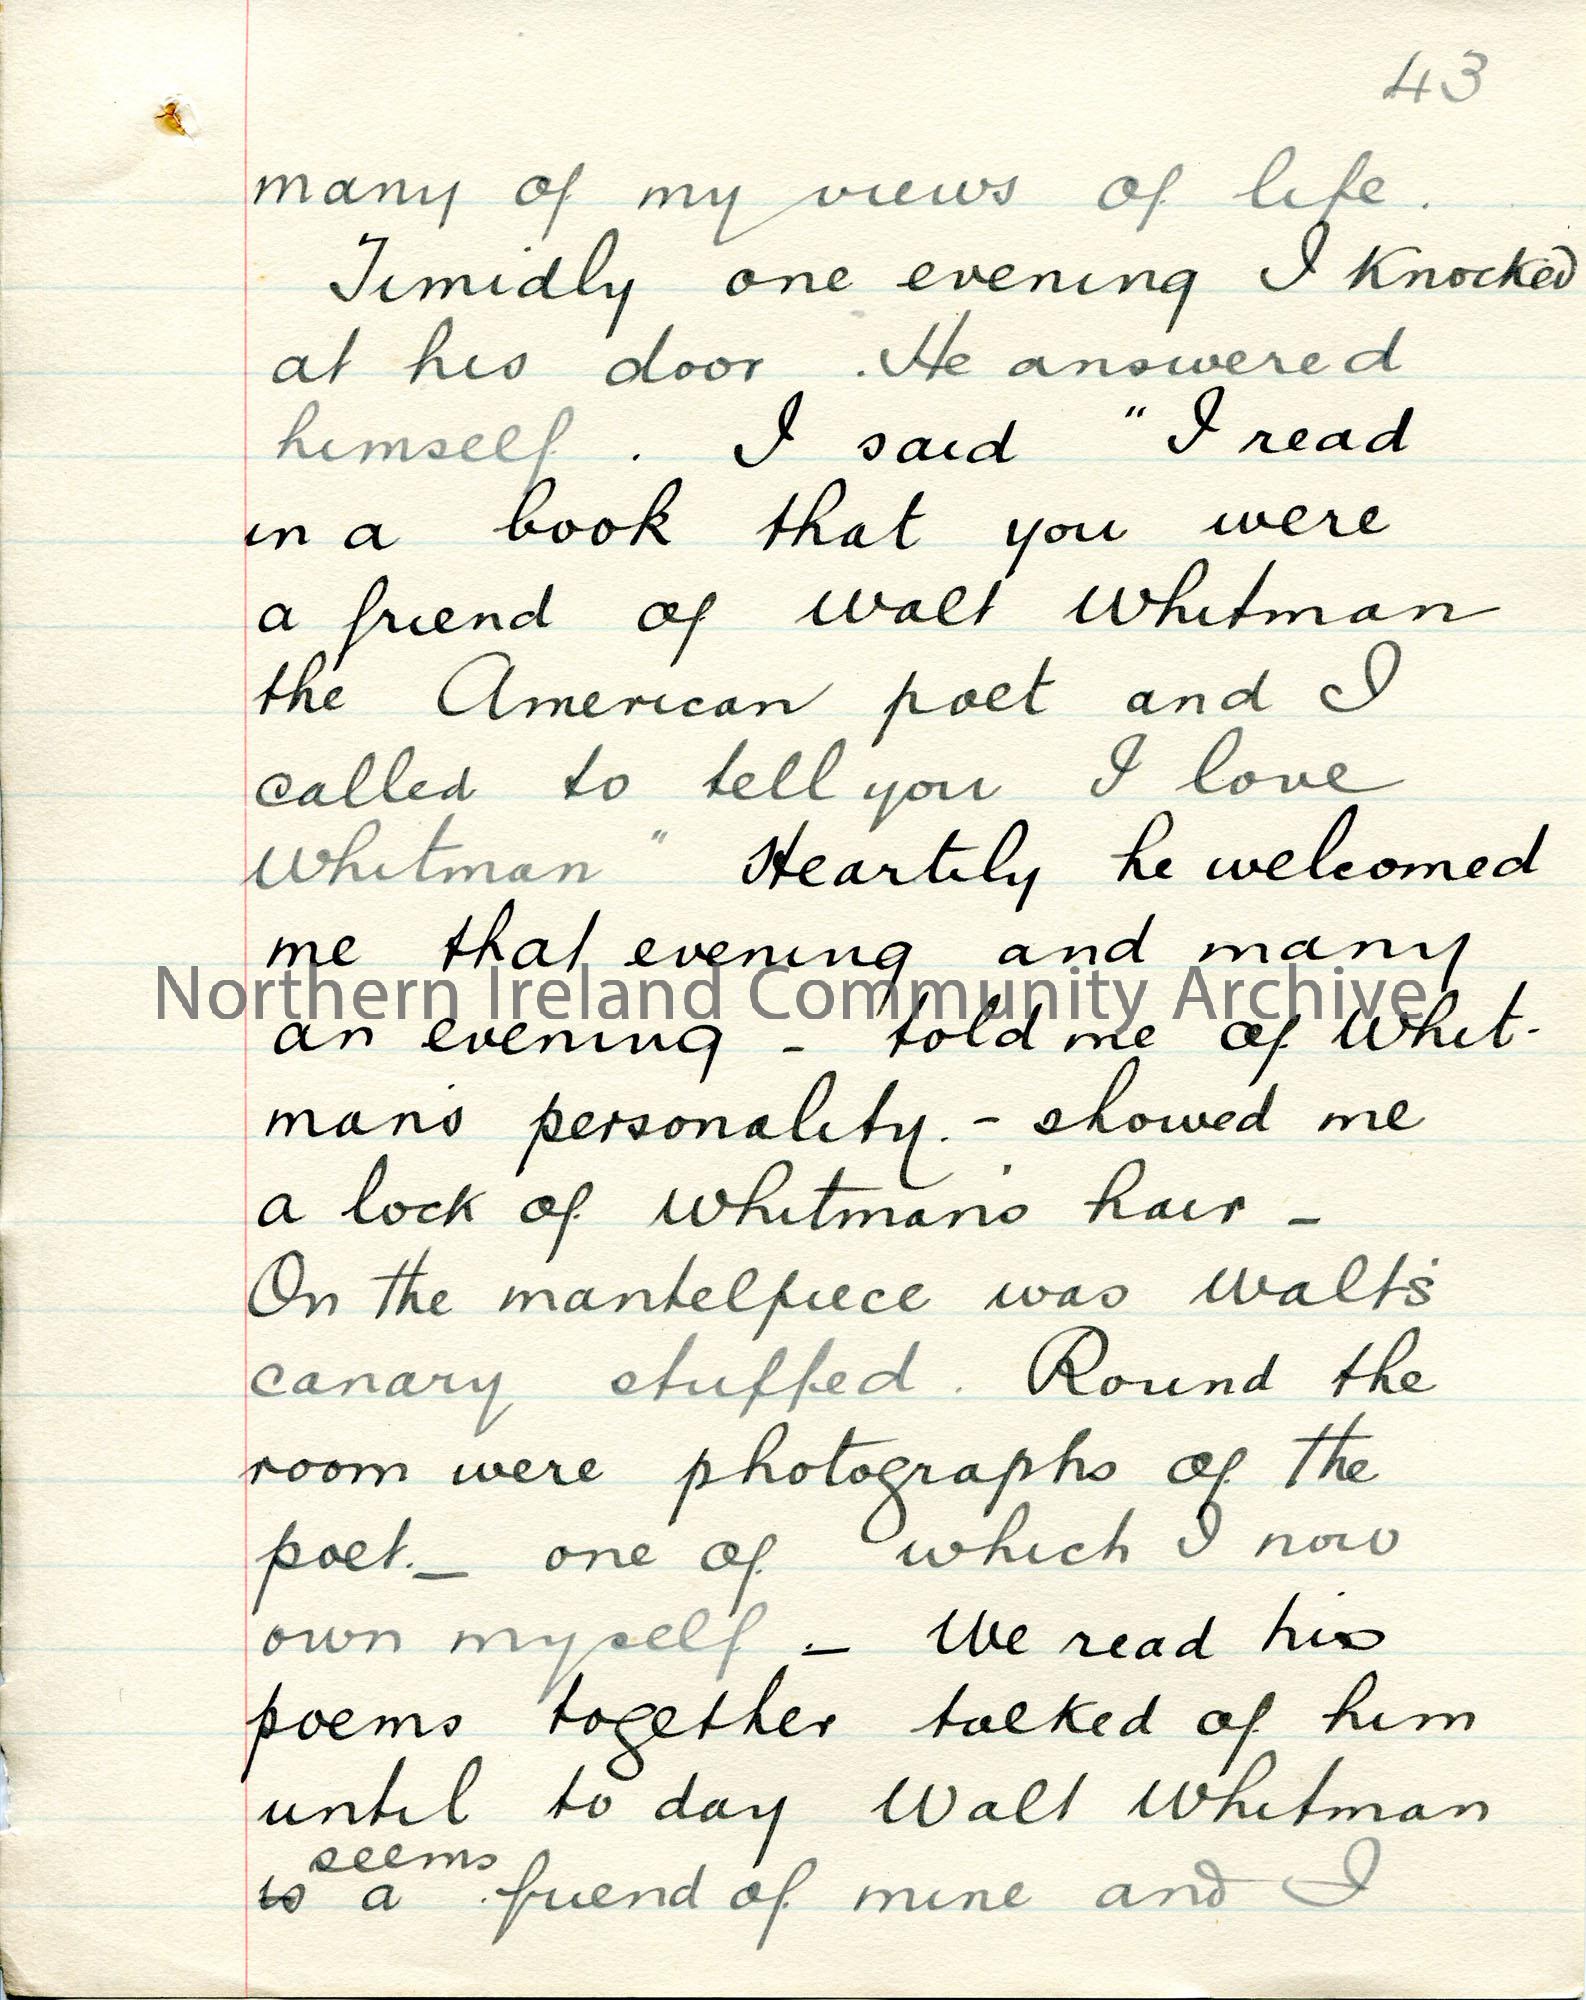 43
many of my views of life.
Timidly one evening I knocked
at his door. He answered
himself. I said "I read
in a book that you were
a friend of Walt Whitman
the American poet and I
called to tell you I love
Whitman" Heartily he welcomed
me that evening and many
Northern Ireland Community Archive
an evening - told me of Whit-
man's personality. - showed me
a lock of Whitman's hair -
On the mantelpiece was Walt's
canary stuffed. Round the
room were photographs of the
poet. - one of which I now
own myself - We read his
poems together talked of him
until to day Walt Whitman
seems
is a friend of mine and I